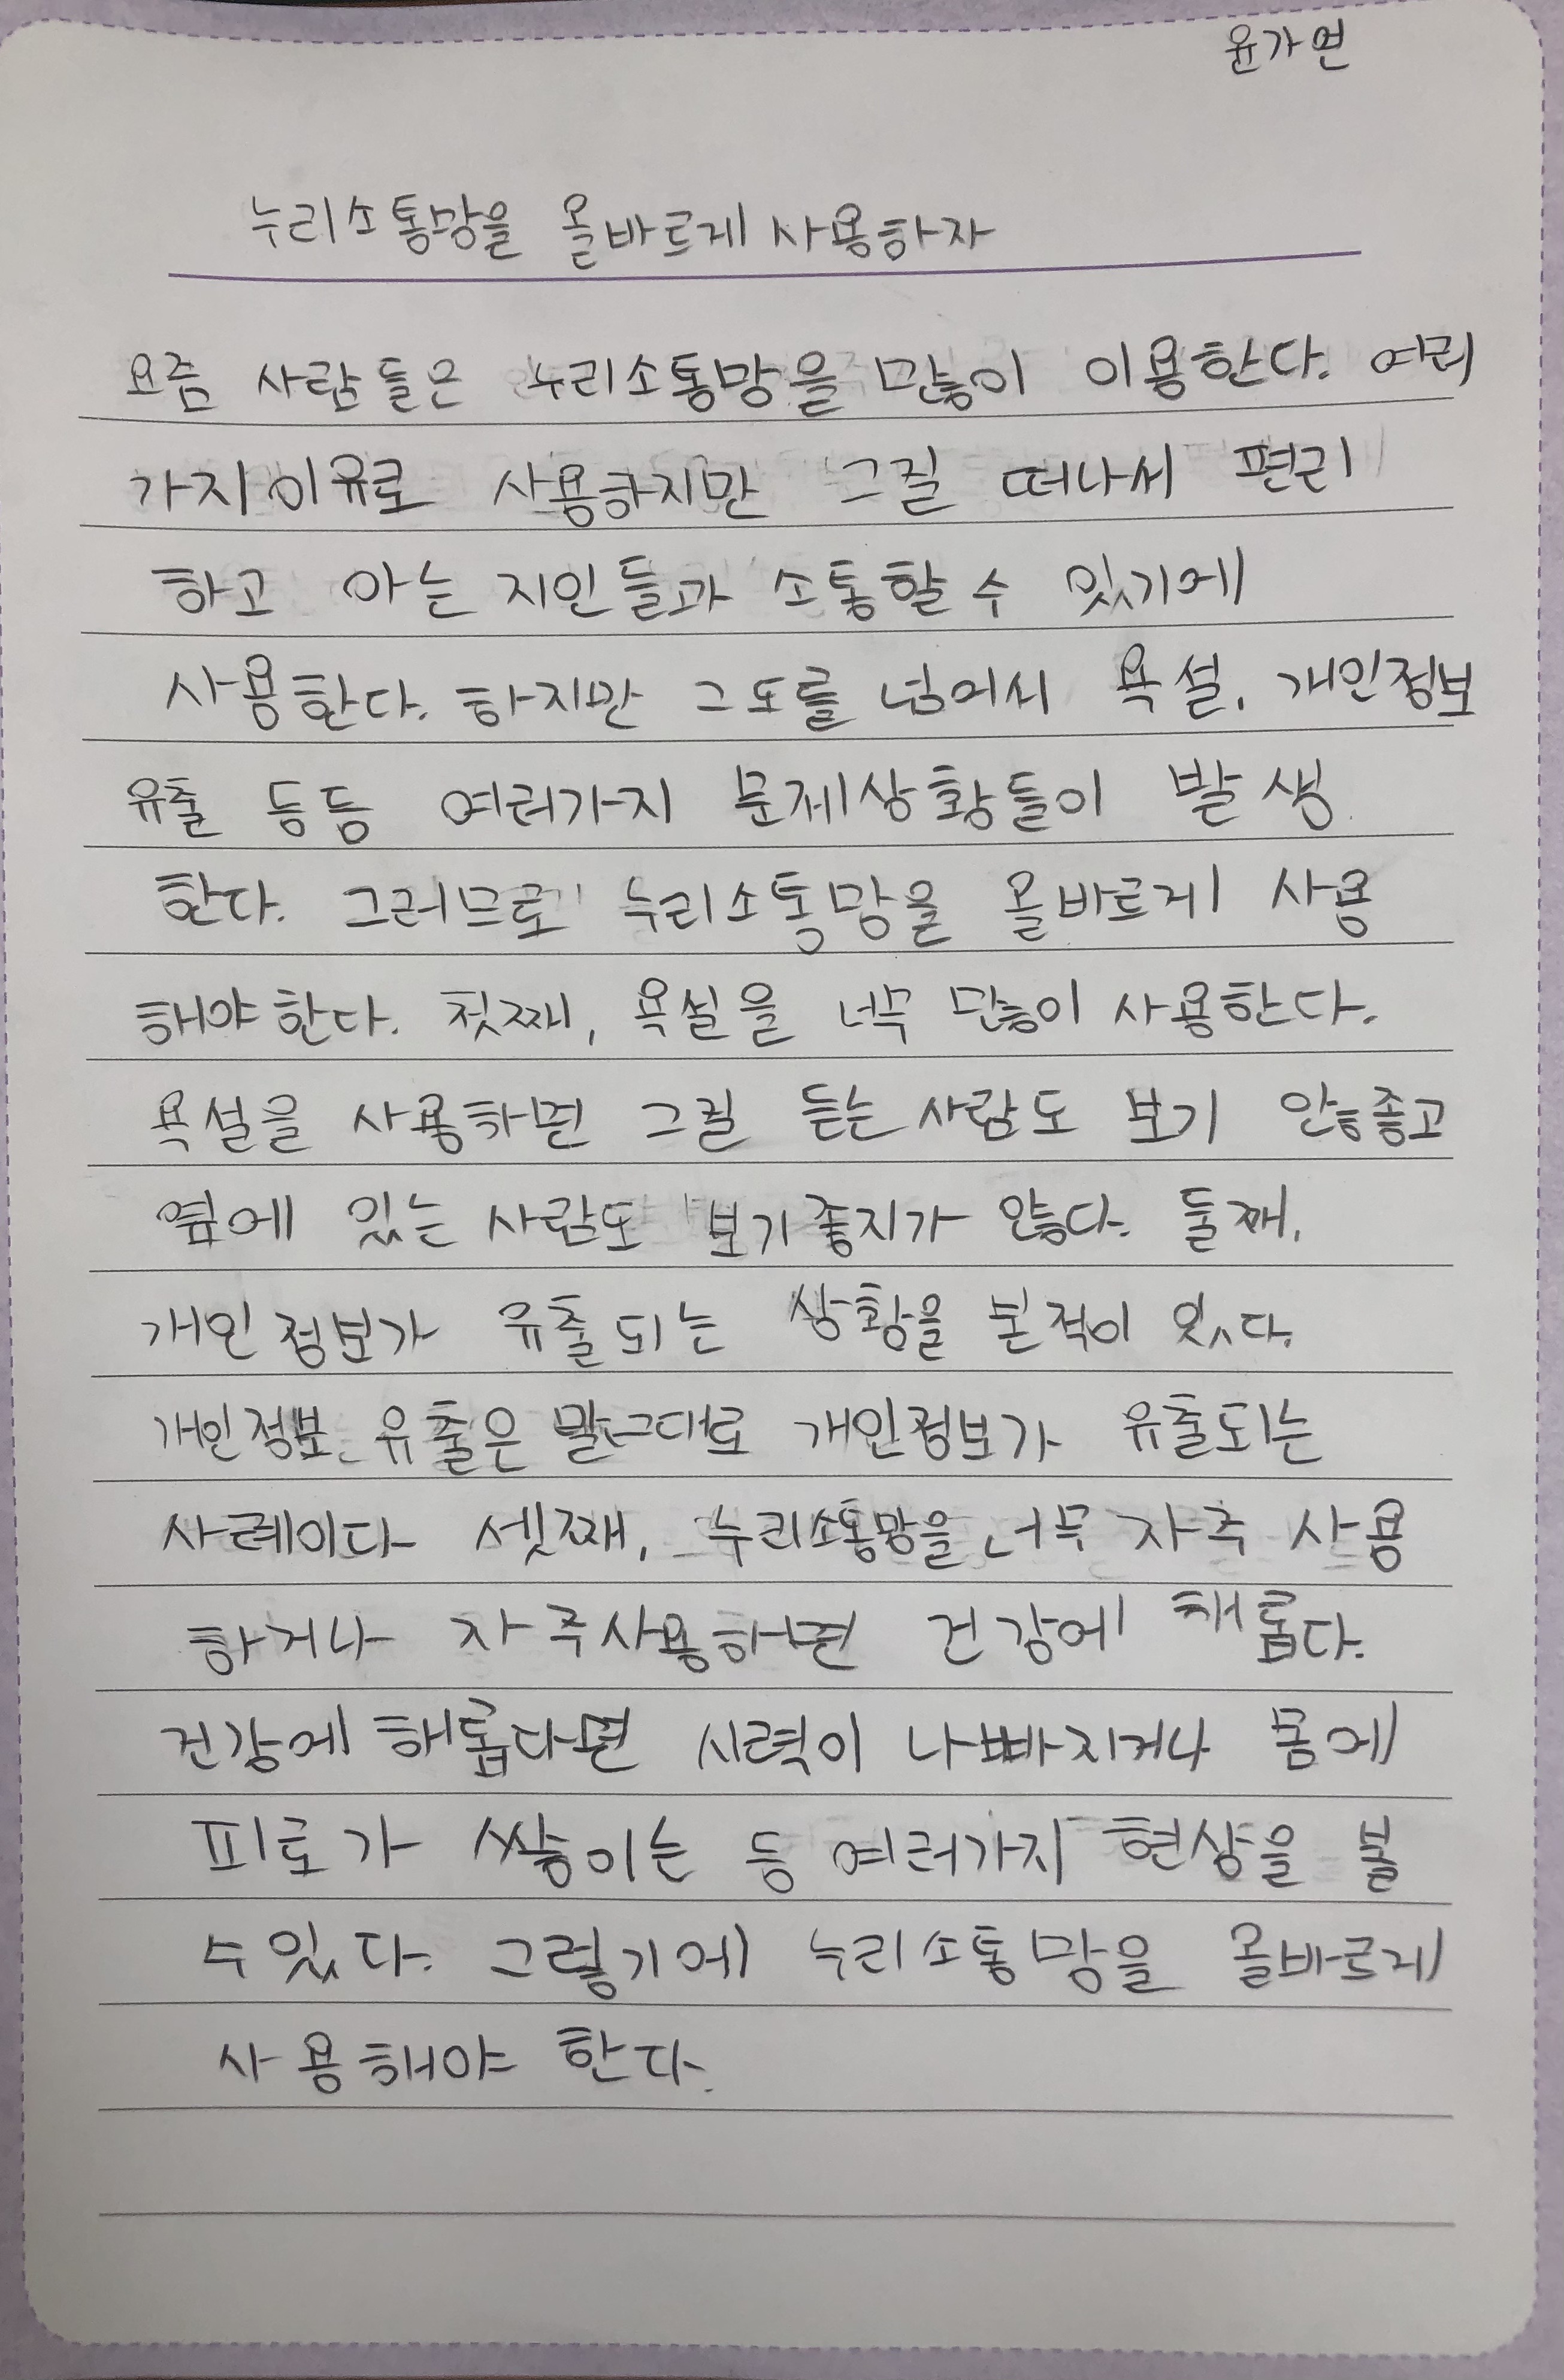 윤가연
누리소통망을 올바르게 사용하자
요즘 사람들은 누리소통망을 많이 이용한다. 여러
가지이유로 사용하지만 그걸 떠나서 편리
하고 아는 지인들과 소통할 수 있기에
사용한다. 하지만 그 도를 넘어서 욕설, 개인정보
유출 등등 여러가지 문제상황들이 발생
한다. 그러므로 누리소통망을 올바르게 사용
해야한다. 첫째, 욕설을 너무 많이 사용한다.
욕설을 사용하면 그걸 듣는 사람도 보기 않좋고
옆에 있는 사람도 보기좋지가 않다. 둘째,
개인정보가 유출되는 상황을 본적이 있다.
개인정보 유출은 말그대로 개인정보가 유출되는
사례이다 셋째, 누리소통망을 너무 자주 사용
하거나 자주사용하면 건강에 해롭다.
건강에 해롭다면 시력이 나빠지거나 몸에
피로가 쌓이는 등 여러가지 현상을 볼
수있다. 그렇기에 누리소통망을 올바르게
사용해야 한다.